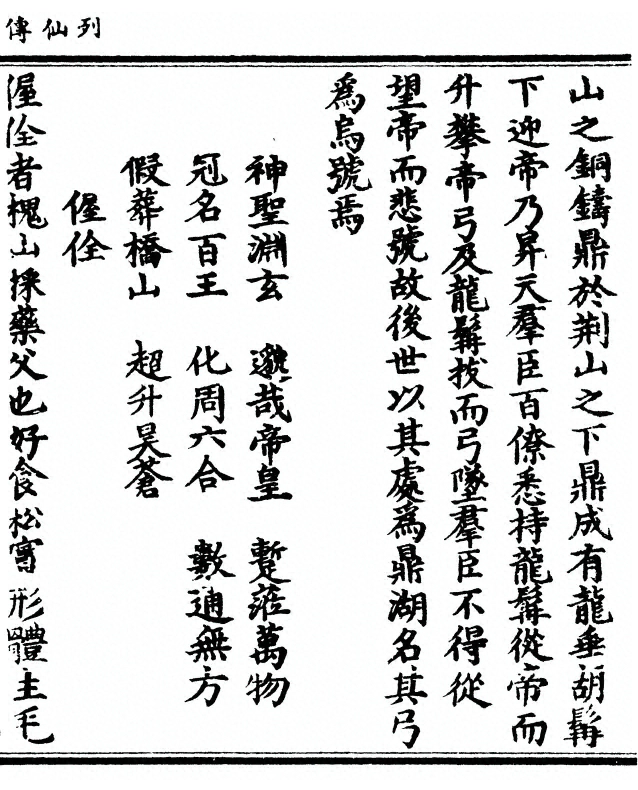 列仙傳
山之銅鑄鼎於荆山之下鼎成有龍垂胡髯
下迎帝乃昇天羣臣百僚悉持龍髯從帝而
升攀帝弓及龍髯拔而弓墜羣臣不得從
望帝而悲號故後世以其處為鼎湖名其弓
為烏號焉
神聖淵玄 邈哉帝皇 蹔蒞萬物
冠名百王 化周六合 數通無方
假葬橋山 超升昊蒼
偓佺
偓佺者槐山採藥父也好食松實形體生毛